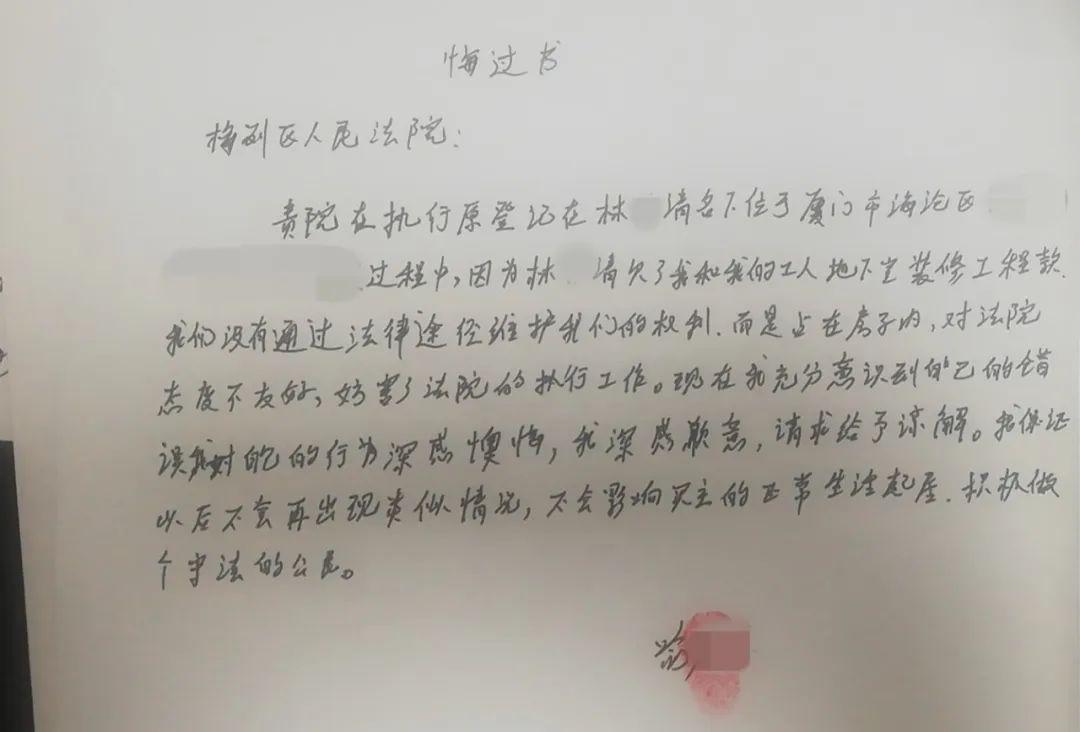 悔过书
梅列区人民法院:
贵院在执行原登记在林 清名下位于厦门市海沧区
过程中,因为林 清欠了我和我的工人地下室装修工程款.
我们没有通过法律途径维护我们的权利.而是占在房子内,对法院
态度不友好,妨害了法院的执行工作。现在我充分意识到自己的错
误我对自己的行为深感懊悔,我深感歉意,请求给予谅解。我保证
以后不会再出现类似情况,不会影响买主的正常生活起居.积极做
个守法的公民。